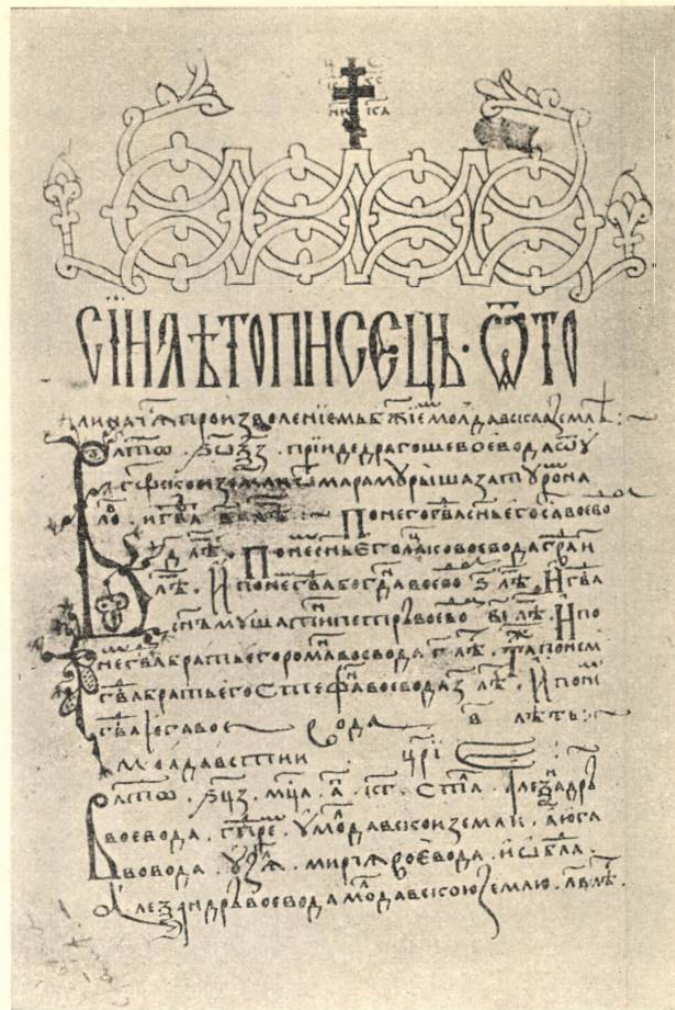 СІИ ЛѢТОПИСЕЦЬ · ѾТО
ли нача сѧ произволенїемь бж҃їе молдавскаа землѣ :~
В лѣтѡ ҂ѕѡѯз · прїиде драгошь воевода ѿ у
гръскои земли ѿ марамурыша за туром на
ло. и г҃ва в҃ лѣ :~ По нег г҃ва снь его са воево
да д҃ лѣ. По не снь его лацко воевода г҃ва и
лѣ. И по не г҃ва богда воево ѕ҃ лѣ. И г҃ва
снь мушати петрь воево ві҃ лѣ. И по
не г҃ва брать его рома воевода г҃ лѣ. Та по нем
г҃ва брать его Стефа воевода з҃ лѣ. И по не
г҃ва юга вое вода в҃ лѣть :~
Молдавстїи ц҃рїи :~
В лѣтѡ ҂ѕцз мц҃а ста алеѯадрь
воевода · у молдавскои земли. а юга
воевода · узѧ мирчѧ воевода. и ѡбла
Алеѯандрь воевода молдавскою землю. лв҃ лѣ.